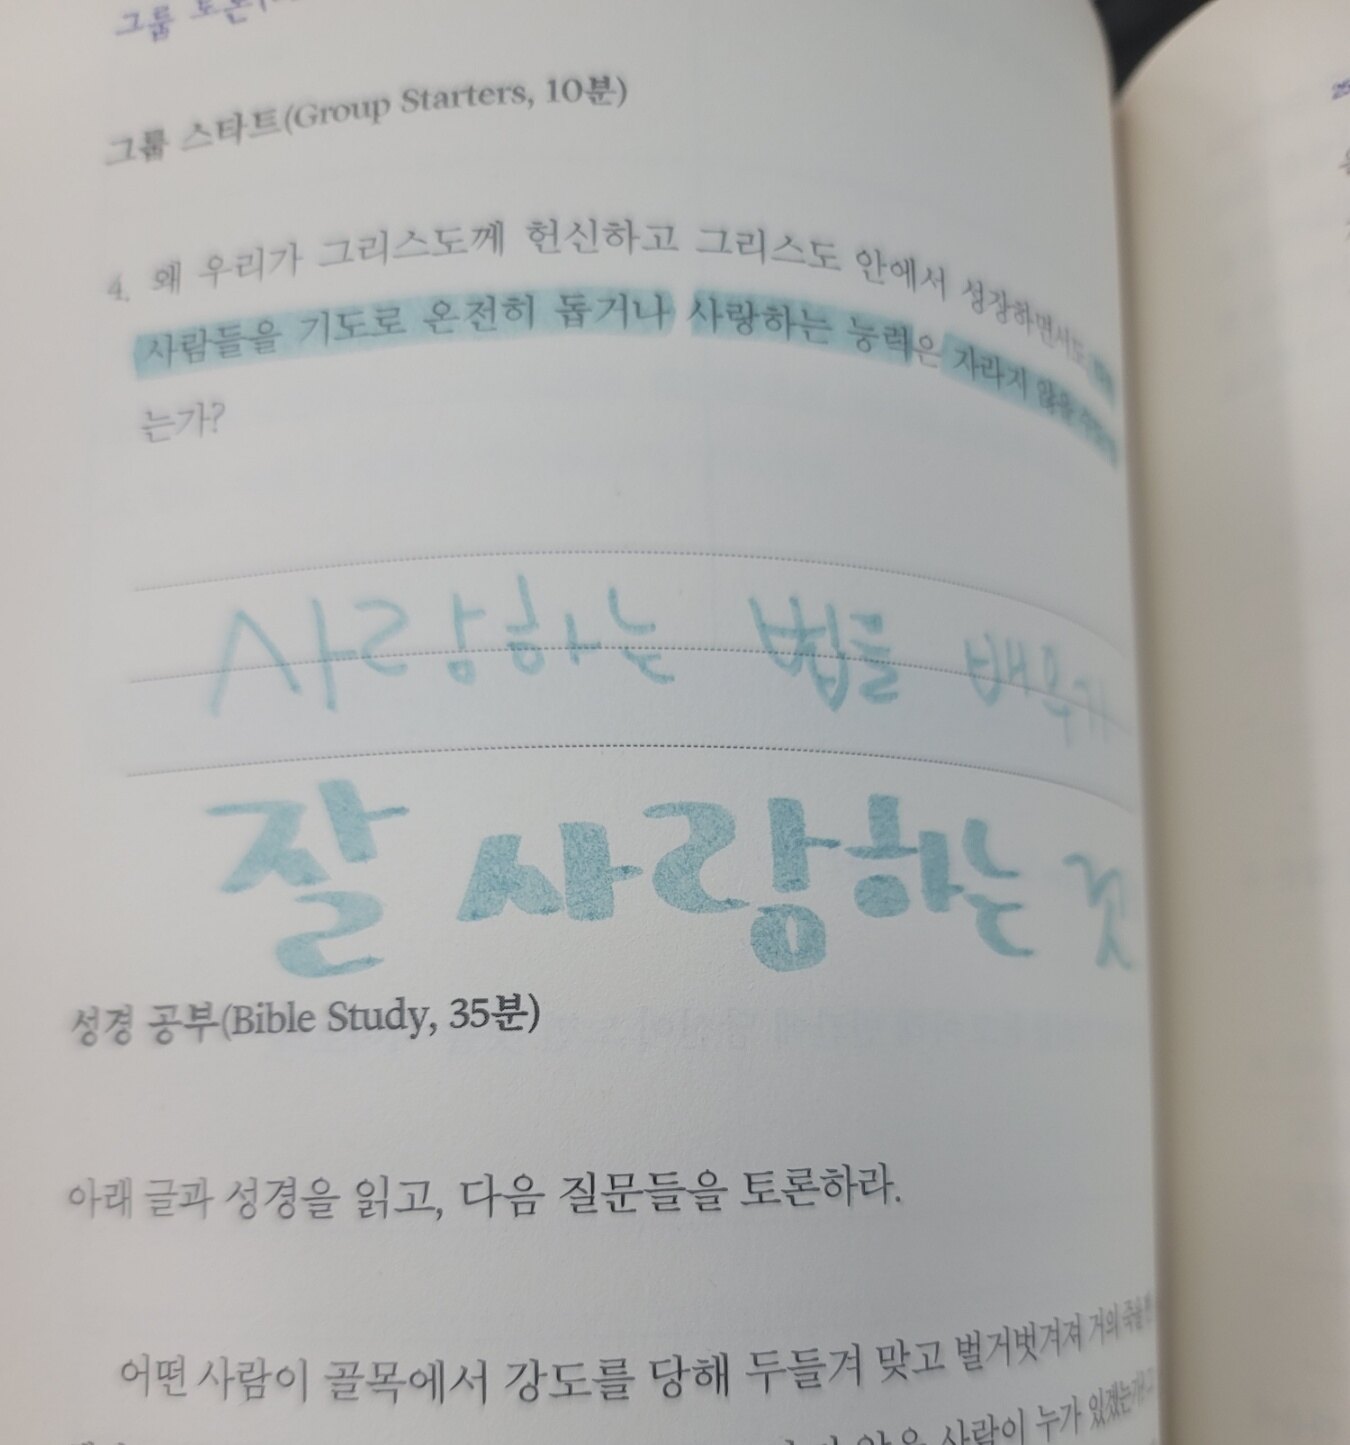 그룹 토론
그룹 스타트(Group Starters, 10분)
4. 왜 우리가 그리스도께 헌신하고 그리스도 안에서 성장하면서도
사람들을 기도로 온전히 돕거나 사랑하는 능력은 자라지 않을 수
는가?
사랑하는 법을 배우기
잘 사랑하는 것
성경 공부(Bible Study, 35분)
아래 글과 성경을 읽고, 다음 질문들을 토론하라.
어떤 사람이 골목에서 강도를 당해 두들겨 맞고 벌거벗겨져 거의 죽을
않은 사람이 누가 있겠는가?